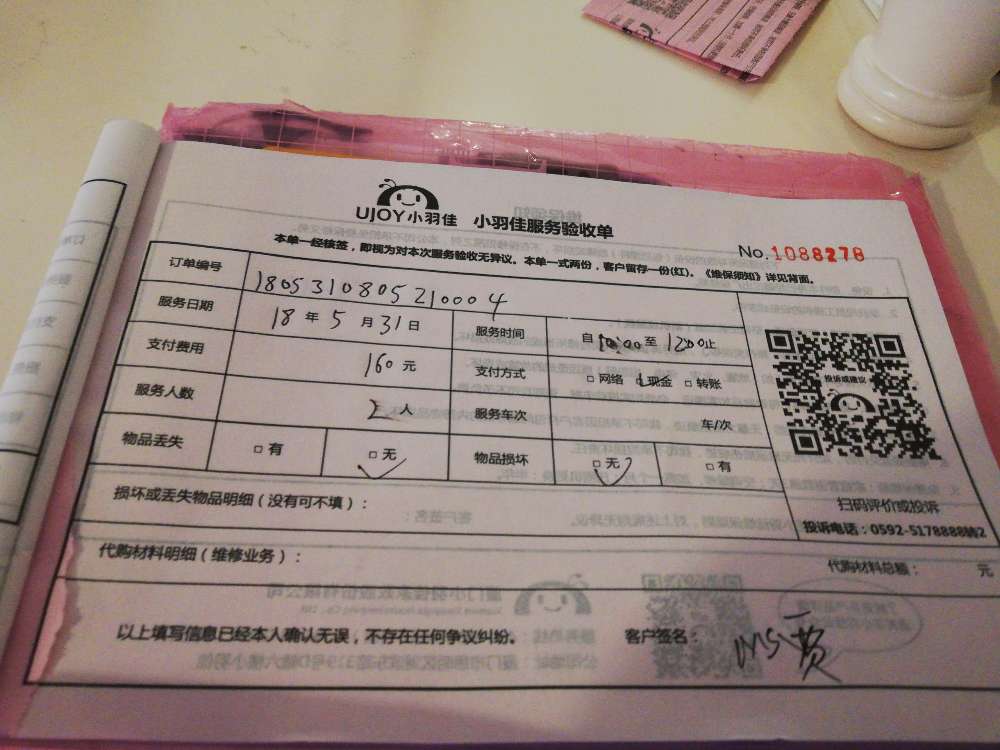 UJOY小羽佳 小羽佳服务验收单
No.1088278
本单一经核签，即视为对本次服务验收无异议。本单一式两份，客户留存一份(红)。《维保须知》详见背面。
订单编号 1805310805210004
服务日期 18 年 5 月 31 日 服务时间 自 10:00 至 1200 止
支付费用 160 元 支付方式 □ 网络 □ 现金 □ 转账
服务人数 2 人 服务车次 车/次
物品丢失 □ 有 □ 无 物品损坏 □ 无 □ 有
投诉或建议
扫码评价或投诉
投诉电话：0592-5178888转2
损坏或丢失物品明细（没有可不填）：
代购材料明细（维修业务）： 代购材料总额： 元
以上填写信息已经本人确认无误，不存在任何争议纠纷。 客户签名：